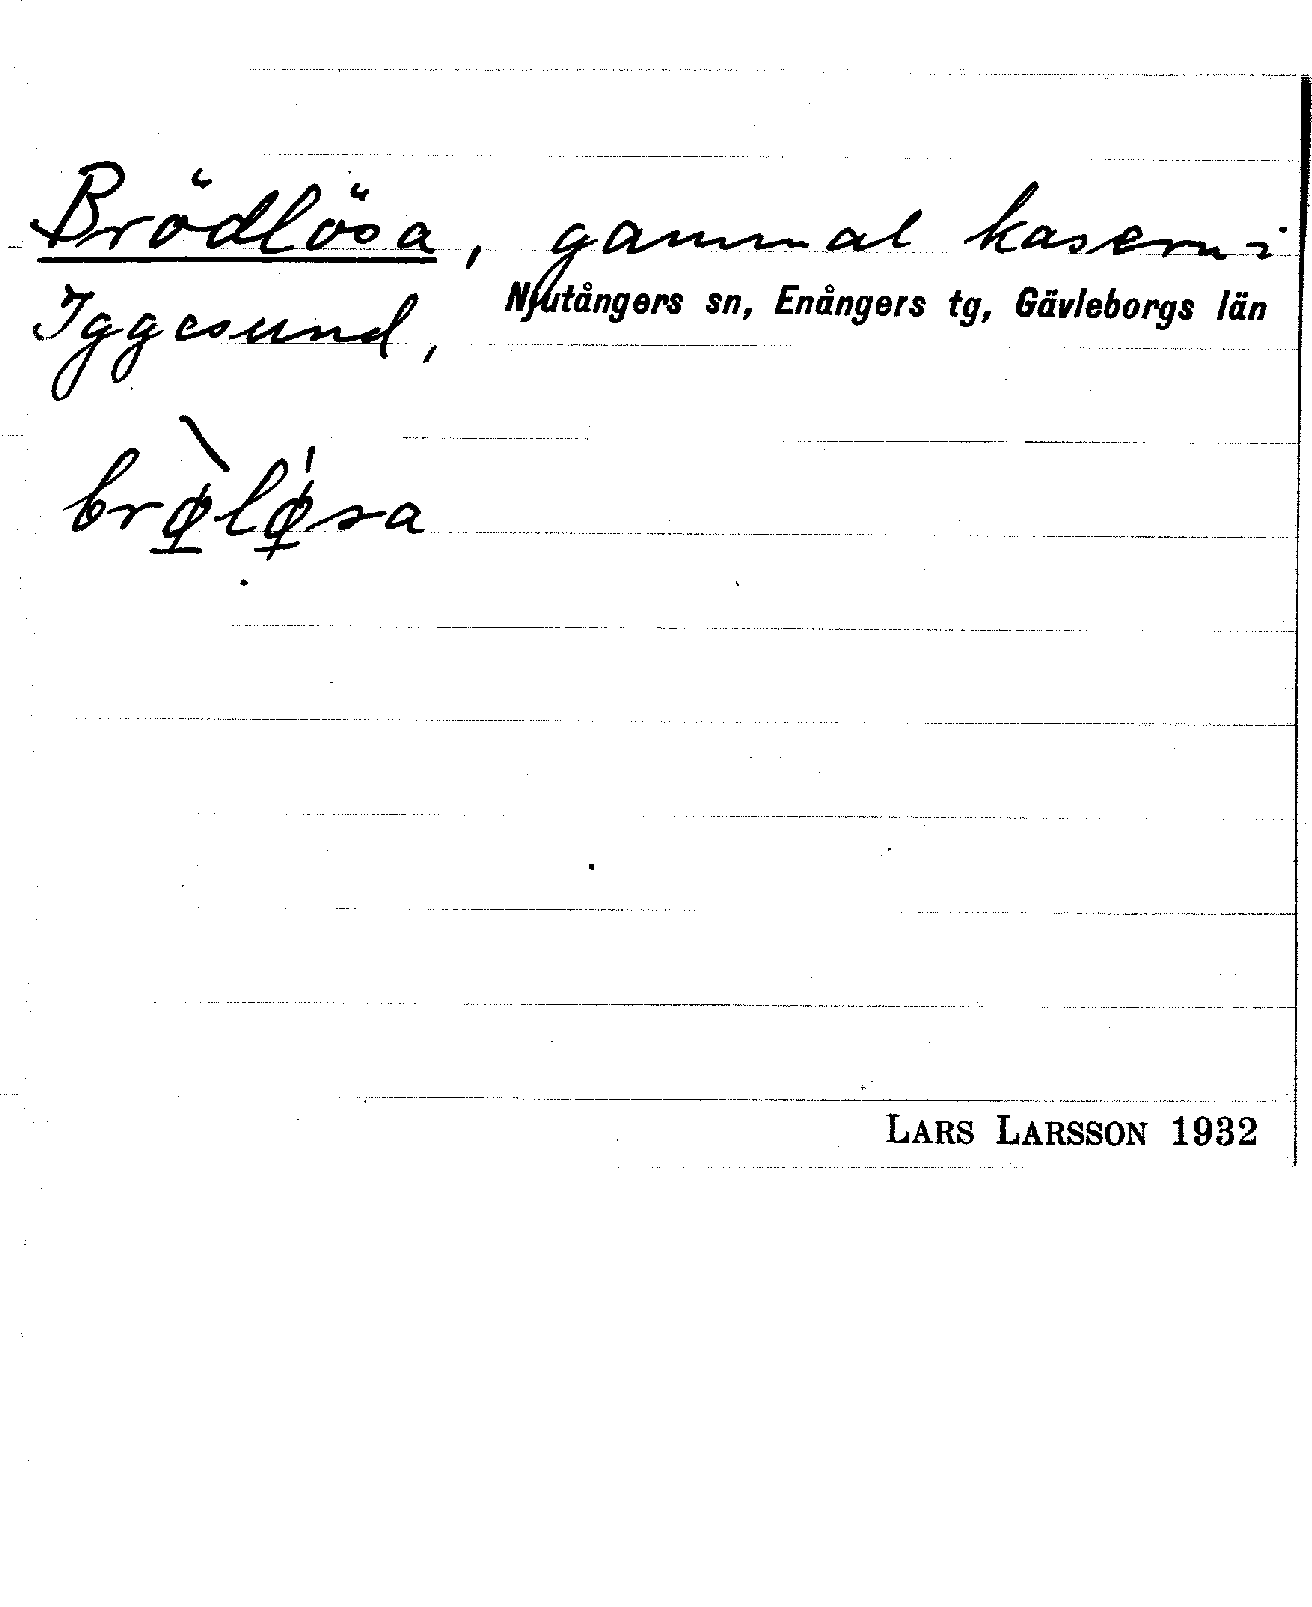 Brödlösa, gammal kasern i
Iggesund, Njutångers sn, Enångers tg, Gävleborgs län
brø̱̀lǿ̱sa
LARS LARSSON 1932